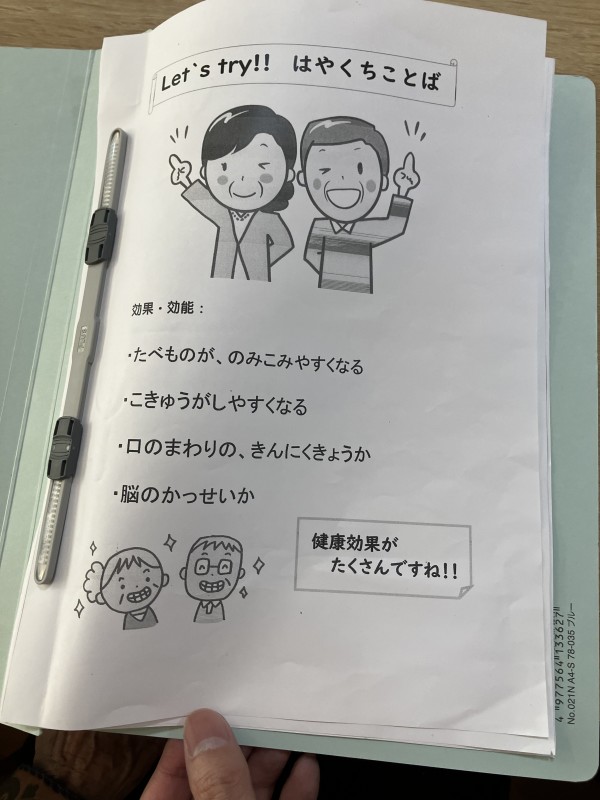 Let`s try!! はやくちことば
効果・効能：
・たべものが、のみこみやすくなる
・こきゅうがしやすくなる
・口のまわりの、きんにくきょうか
・脳のかっせいか
健康効果が
たくさんですね!!
4 977564 133627
No.021N A4-S 78-035 ブルー